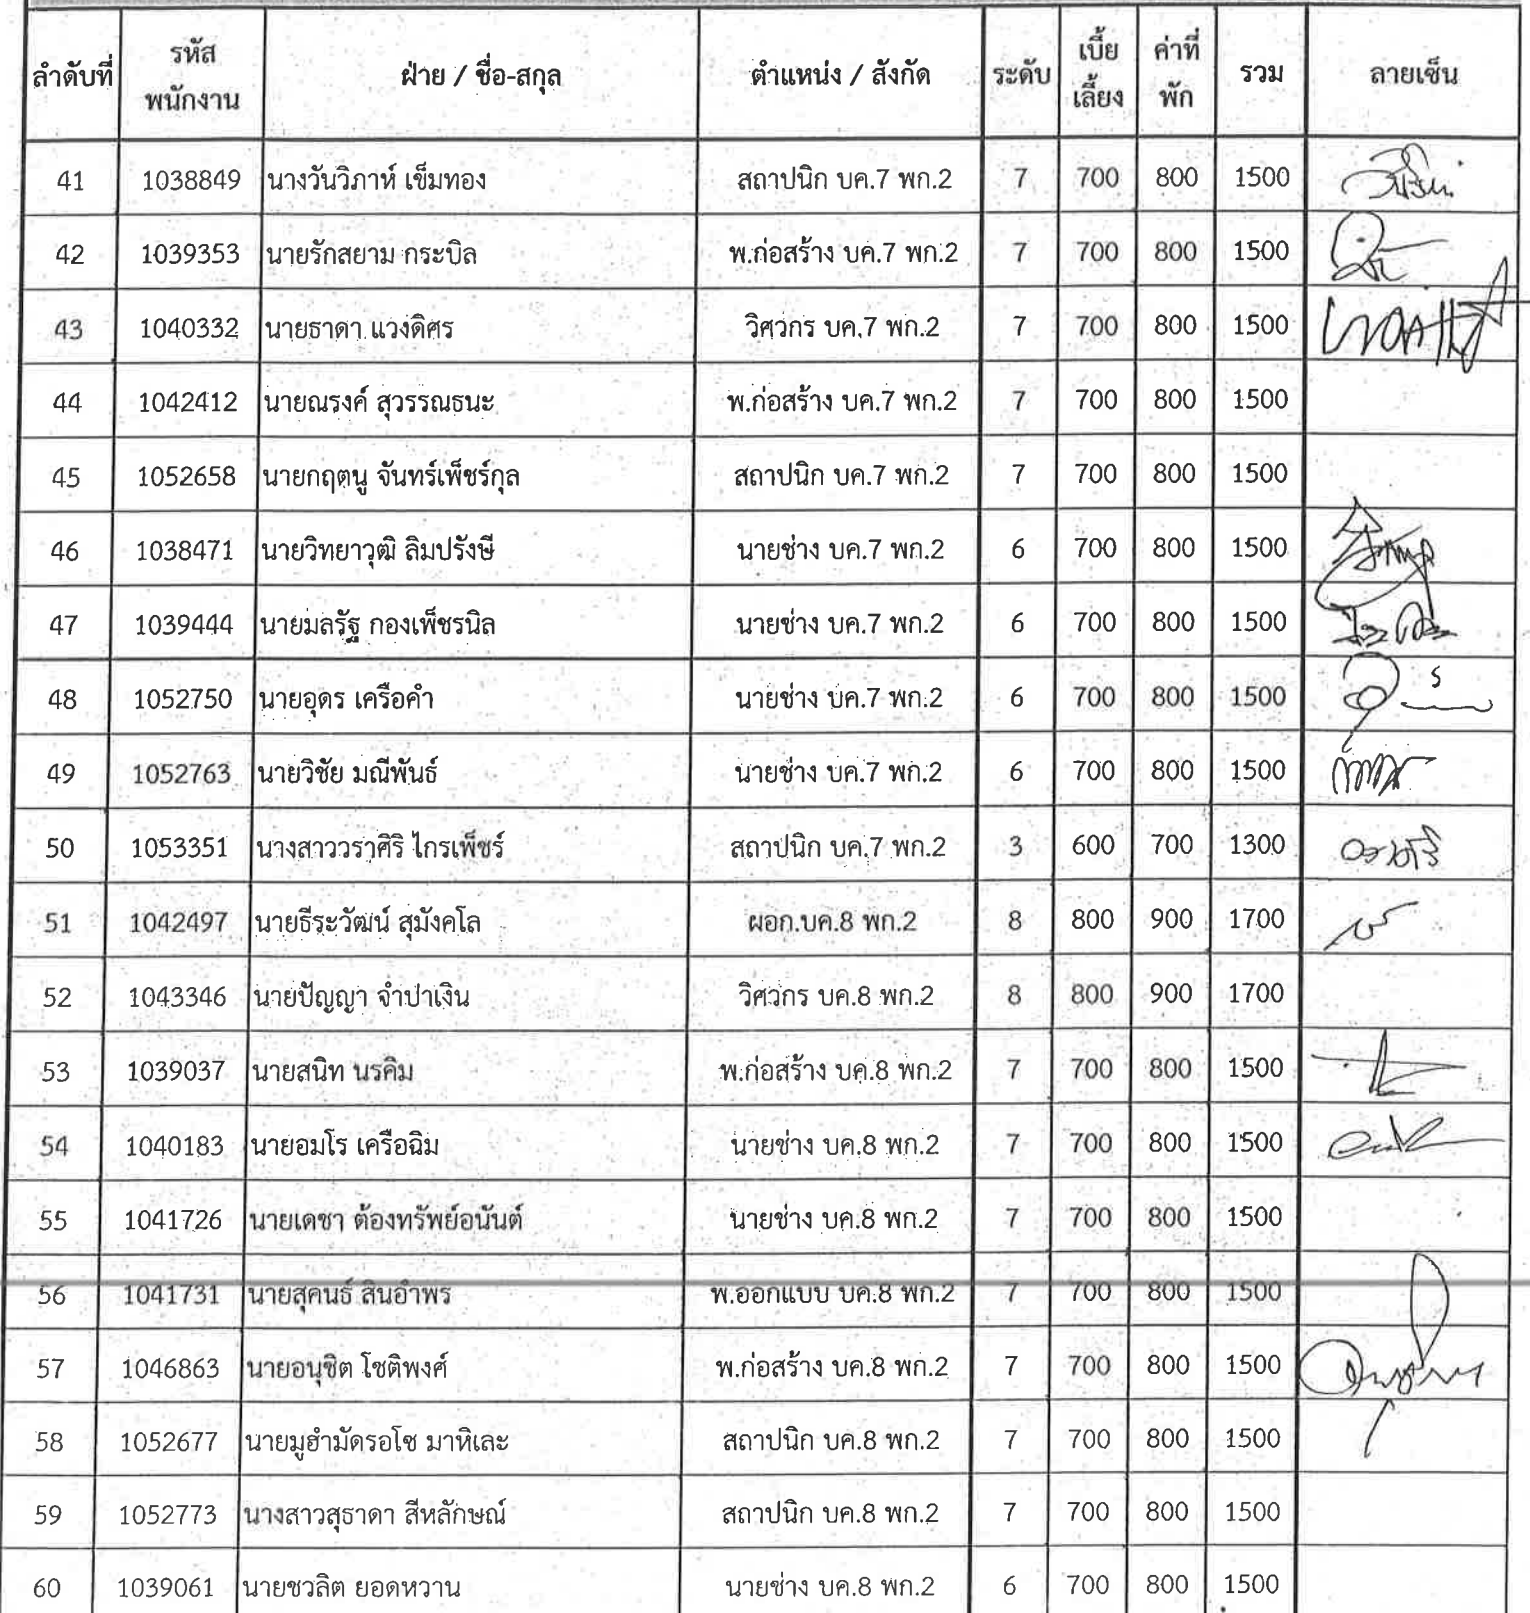 ลำดับที่ รหัสพนักงาน ฝ่าย / ชื่อ-สกุล ตำแหน่ง / สังกัด ระดับ เบี้ยเลี้ยง ค่าที่พัก รวม ลายเซ็น
41 1038849 นางวันวิภาห์ เข็มทอง สถาปนิก บค.7 พก.2 7 700 800 1500
42 1039353 นายรักสยาม กระบิล พ.ก่อสร้าง บค.7 พก.2 7 700 800 1500
43 1040332 นายธาดา แวงดิศร วิศวกร บค.7 พก.2 7 700 800 1500
44 1042412 นายณรงค์ สุวรรณธนะ พ.ก่อสร้าง บค.7 พก.2 7 700 800 1500
45 1052658 นายกฤตนู จันทร์เพ็ชร์กุล สถาปนิก บค.7 พก.2 7 700 800 1500
46 1038471 นายวิทยาวุฒิ ลิมปรังษี นายช่าง บค.7 พก.2 6 700 800 1500
47 1039444 นายมลรัฐ กองเพ็ชรนิล นายช่าง บค.7 พก.2 6 700 800 1500
48 1052750 นายอุดร เครือคำ นายช่าง บค.7 พก.2 6 700 800 1500
49 1052763 นายวิชัย มณีพันธ์ นายช่าง บค.7 พก.2 6 700 800 1500
50 1053351 นางสาววราศิริ ไกรเพ็ชร์ สถาปนิก บค.7 พก.2 3 600 700 1300
51 1042497 นายธีระวัฒน์ สุมังคโล ผอก.บค.8 พก.2 8 800 900 1700
52 1043346 นายปัญญา จำปาเงิน วิศวกร บค.8 พก.2 8 800 900 1700
53 1039037 นายสนิท นรคิม พ.ก่อสร้าง บค.8 พก.2 7 700 800 1500
54 1040183 นายอมโร เครือฉิม นายช่าง บค.8 พก.2 7 700 800 1500
55 1041726 นายเดชา ต้องทรัพย์อนันต์ นายช่าง บค.8 พก.2 7 700 800 1500
56 1041731 นายสุคนธ์ สินอำพร พ.ออกแบบ บค.8 พก.2 7 700 800 1500
57 1046863 นายอนุชิต โชติพงศ์ พ.ก่อสร้าง บค.8 พก.2 7 700 800 1500
58 1052677 นายมูฮำมัดรอโซ มาหิเละ สถาปนิก บค.8 พก.2 7 700 800 1500
59 1052773 นางสาวสุธาดา สีหลักษณ์ สถาปนิก บค.8 พก.2 7 700 800 1500
60 1039061 นายชวลิต ยอดหวาน นายช่าง บค.8 พก.2 6 700 800 1500